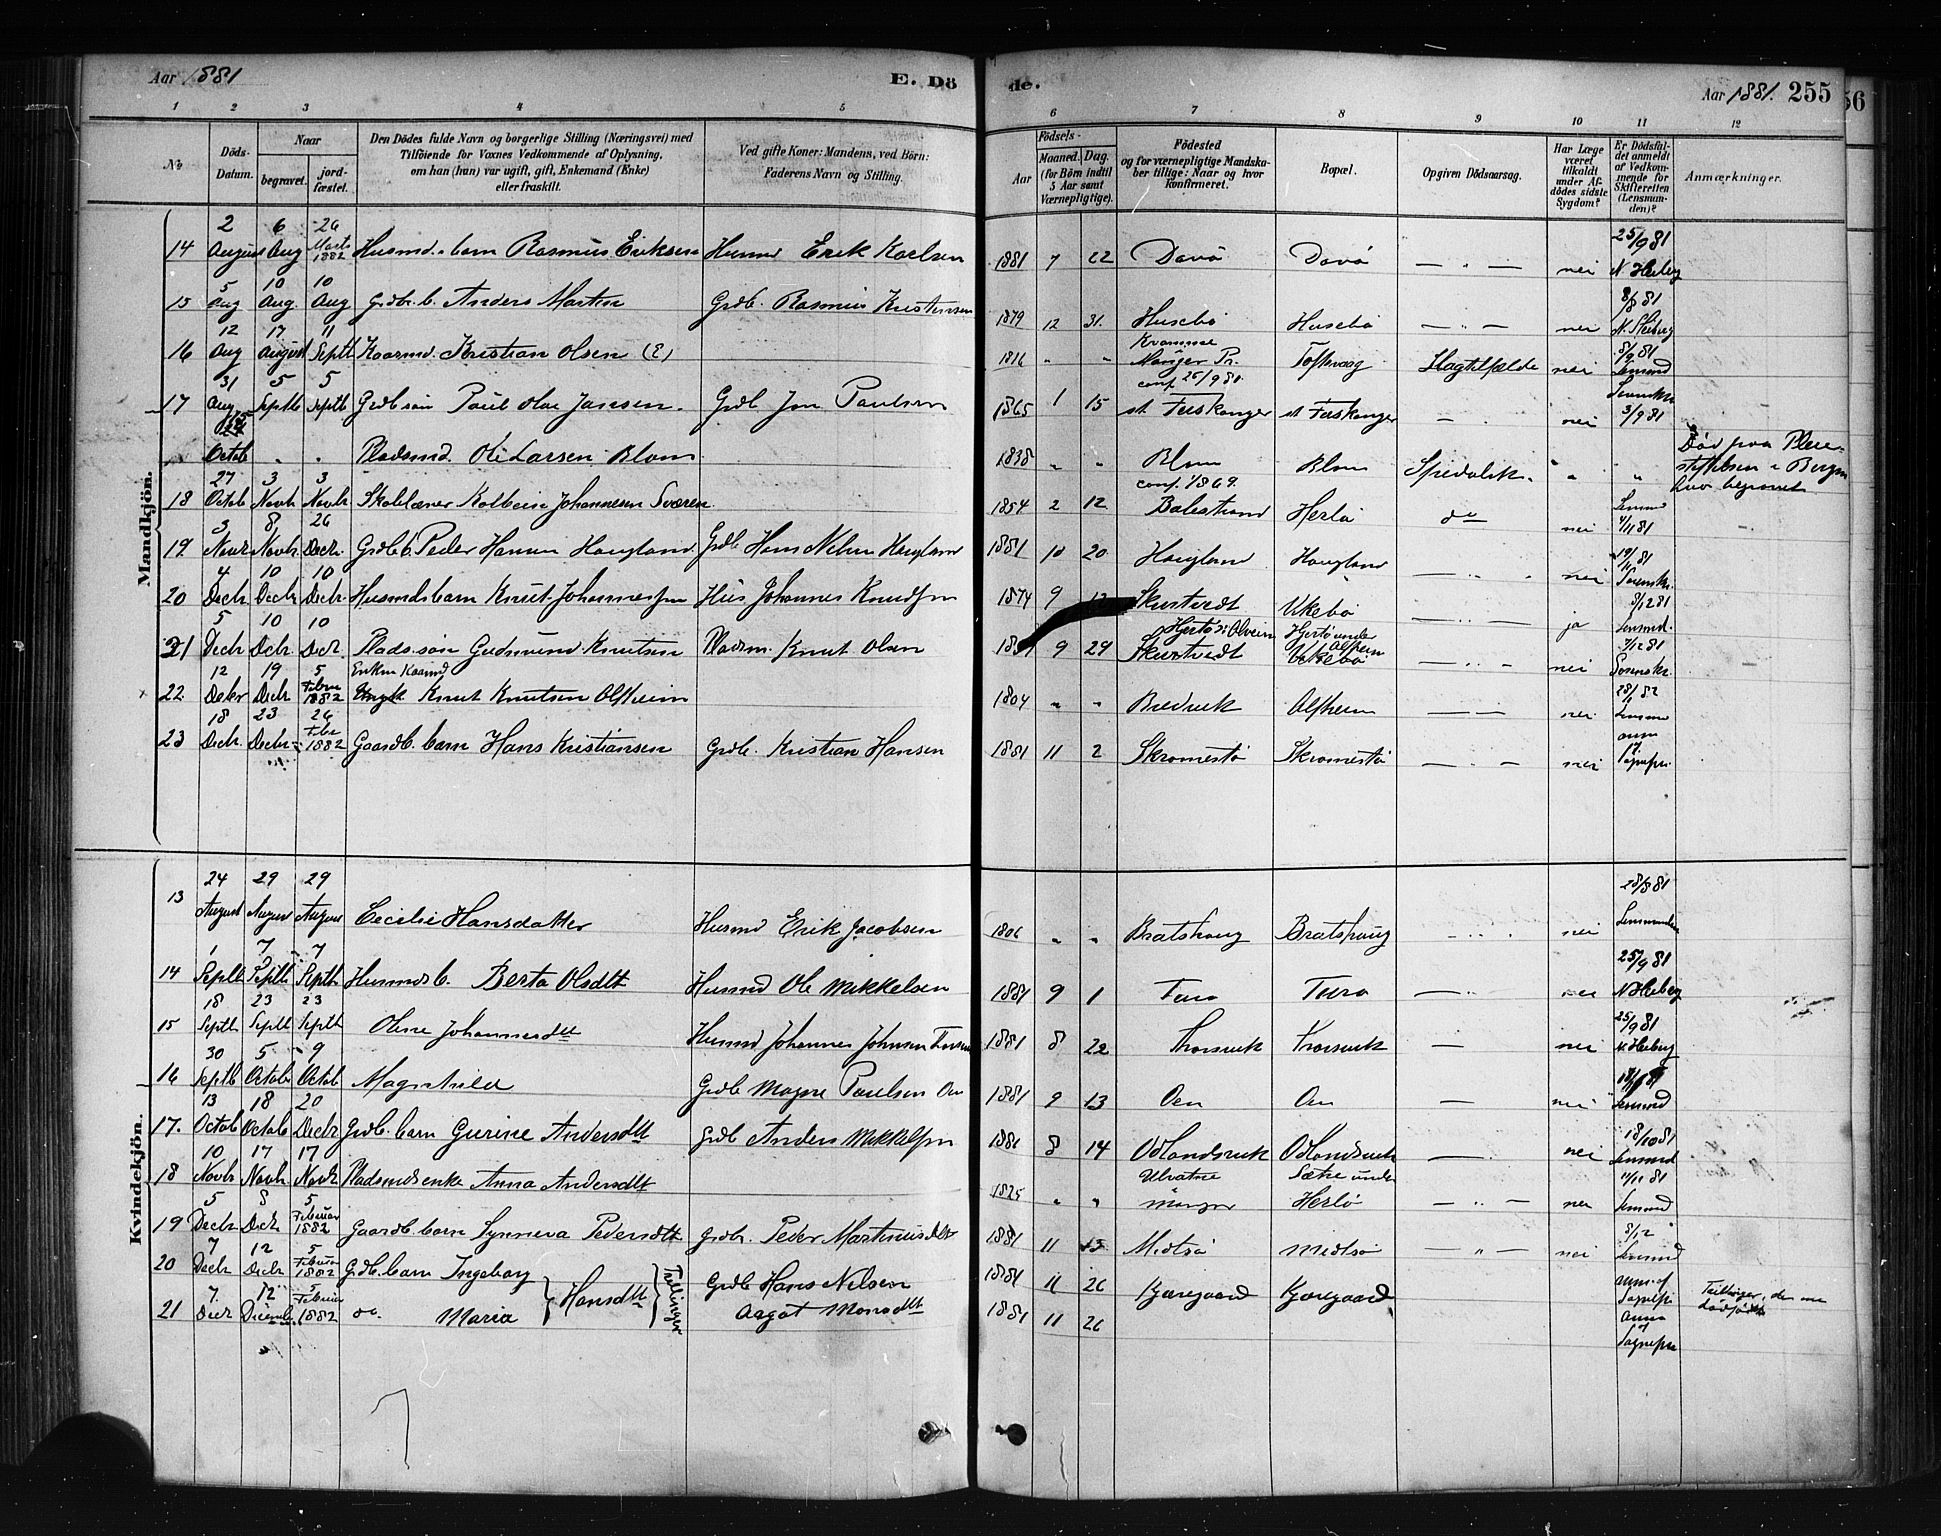 Aar 1881 E. Dö
de. Aar 1881. 255
56
1 2 3 4 5 6 7 8 9 10 11 12
No
Döds-Datum.
Naar
begravet.
jord-fæstet.
Den Dödes fulde Navn og borgerlige Stilling (Næringsvei) med
Tilföiende for Voxnes Vedkommende af Oplysning,
om han (hun) var ugift, gift, Enkemand (Enke)
eller fraskilt.
Ved gifte Koner: Mandens, ved Börn:
Faderens Navn og Stilling.
Födsels-
Aar
Maaned.
Dag.
(for Börn indtil
5 Aar samt
Værnepligtige).
Födested
og for værnepligtige Mandska-
ber tillige: Naar og hvor
konfirmeret.
Bopæl.
Opgiven Dödsaarsag.
Har Læge
været
tilkaldt
under Af-
dödes sidste
Sygdom?
Er Dödsfal-
det anmeldt
af Vedkom-
mende for
Skifteretten
(Lensman-
den)?
Anmærkninger.
Mandkjön.
14 2 August 6 Aug 26 Marts 1882 Husmd. barn Rasmus Eriksen Husmd Erik Karlsen 1881 7 22 Davö Davö — " — nei 25/9 81 N Heiberg
15 5 Aug 10 Aug. 10 Aug Grdbr. b. Anders Martin Grdb. Rasmus Kristensen 1879 12 31. Husebö Husebö — " — nei 8/8 81
16 12 Aug 17 August 11 Septb Kaarmd. Kristian Olsen (E) 1816 " " Manger Pr. Toftevaag Slagtilfælde nei 8/9 81 Lensmd
17 31 Aug 5 Septb 5 Septb Grdb søn Paul Olai Jansen. Grdb Jon Paulsen 1865 1 15 conf. 25/9 81. nei 3/9 81
Octob " " Pladsmd. Ole Larsen Blom 1838 " " Blom Blom Spedalsk. " " Død paa Pleie-
stiftelsen i Bergen
hvor begravet
18 27 Octob 3 Novb 3 Novbr Skolelærer Kolbein Johannesen Sværen. 1854 2 12 conf. 1869. Balestrand Herlö do nei Lensmd 4/11 81
19 3 Novbr 8 Novbr 26 Decbr. Grdb b. Peder Hansen Haugland. Grdb Hans Nilsen Haugland 1881 10 20 Haugland Haugland — " — nei 19/11 81
20 4 Decbr 10 Decbr 10 Decbr. Husmdsbarn Knut Johannessen Hus Johannes Knudsen 1874 9 Skurtvedt Ukebö — " — ja 8/12 81 Lensmd.
21 5 Decbr 10 Dcbr 10 Decbr. Plads. søn Gudmund Knutsen Pladsm. Knut Olsen 9 29 Skurtvedt Ukebö — " — nei 7/12 81
22. 12 Decbr 19 Decbr 5 Febru 1882 Enkem Kaarmd Knut Knutsen Alfheim 1804 " " Bredvik Alfheim — — nei 28/1 82 Lensmd
23 18 Decbr. 23 Decbr. 26 Febr 1882 Gaardb. barn Hans Kristiansen Grdb. Kristian Hansen 1881 11 2 Skromestö Skromestö — " — nei
Kvindekjön.
13 24 August 29 August 29 August Cecilie Hansdatter Husmd Erik Jacobsen 1806 " " Bratshaug Bratshaug — " — nei 28/8 81 Lensmanden
14 1 Septb 7 Septb 7 Septb. Husmds b. Berta Olsdtt Husmd Ole Mikkelsen 1881 9 1 Turö Turö — " nei 25/9 81 N Heiberg
15 18 Septb 23 Septb 23 Septb Oline Johannesdtt Husmd Johannes Johnsen 1881 8 22 Thorsvik Thorsvik — nei 25/9 81 N. Heiberg
16 30 Septb 5 Octob 9 Octob Magnhild Grdb Magne Paulsen Oen 1881 9 13 Oen Oen — nei Lensmd
17. 13 Octob 18 Octob 20 Decbr Grdb. barn Gurine Andersdtt Grdb Anders Mikkelsen 1881 8 14 Odlandsvik Odlandsvik — nei 18/10 81 Lensmd
18 10 Novbr 17 Novb 17 Novbr Pladsmdsenke Anna Andersdtt 1825 " " Ulvatne Manger Sætre under Herlö — " — nei 14/11 81 Lensmd
19 5 Decbr 8 Decbr 5 Februar 1882 Gaardb. barn Synneva Pedersdtt Grdbr. Peder Martinus 1881 11 15 Midtsö Midtsö — " — nei 8/12 Lensmd
20 7 Decbr 12 Decbr 5 Februar 1882 Grdb. barn Ingeborg } Hansdtt } Tvillinger Grdb Hans Nilsen 1881 11 26 Kjæregaard Kjæregaard
21 7. Decbr 12 December 5 Februar 1882 do. Maria Asgot Monsdtt 1881 11 26